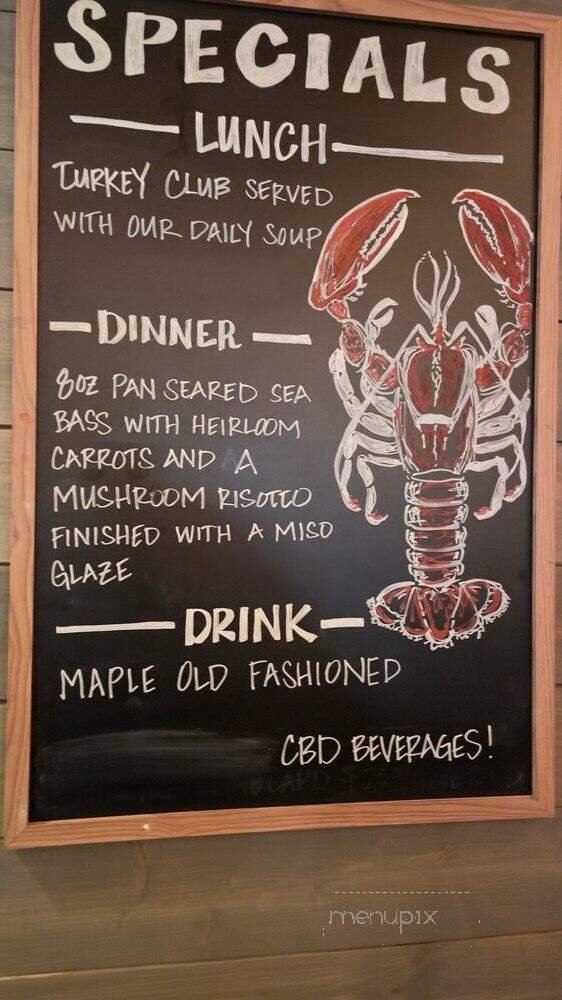 SPECIALS
LUNCH
TURKEY CLUB SERVED
WITH OUR DAILY SOUP
DINNER
8OZ PAN SEARED SEA
BASS WITH HEIRLOOM
CARROTS AND A
MUSHROOM RISOTTO
FINISHED WITH A MISO
GLAZE
DRINK
MAPLE OLD FASHIONED
CBD BEVERAGES!
menupix